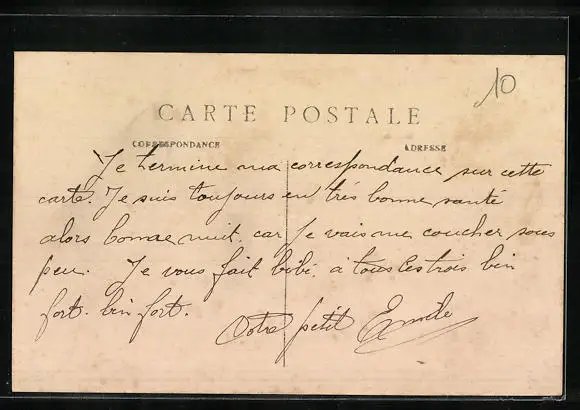 10
CARTE POSTALE
CORRESPONDANCE ADRESSE
Je termine ma correspondance sur cette
carte. Je suis toujours en très bonne santé
alors bonne nuit, car je vais me coucher sous
peu. Je vous fait bibi à tous les trois bin
fort. bin fort.
Votre petit Emile